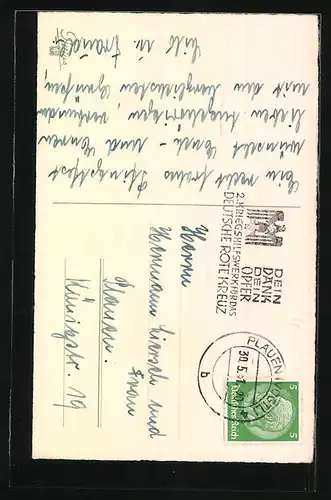 Ein recht frohes Pfingstfest
wünscht Euch und Euren
lieben Angehörigen, verbunden
mit den herzlichsten Grüssen,
DEIN
DANK
DEIN
OPFER
2. KRIEGSHILFSWERK FÜR DAS
DEUTSCHE ROTE KREUZ
PLAUEN
30.5.
b
5 5
Deutsches Reich
Herrn
Hermann und
Frau
Plauen.
Königstr. 19